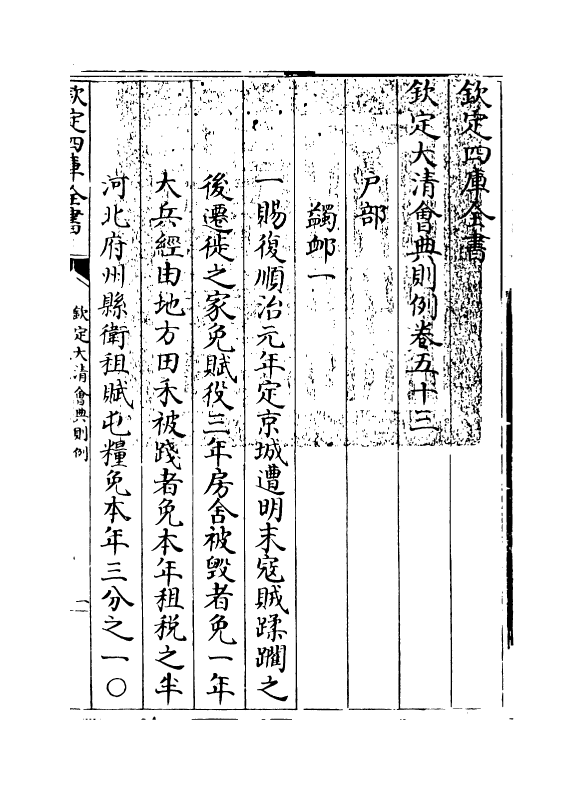 欽定四庫全書
欽定大清會典則例卷五十三
戸部
蠲卹一
一賜復順治元年定京城遭明末寇賊蹂躙之
後遷徙之家免賦役三年房舍被毁者免一年
大兵經由地方田禾被踐者免本年租税之半
河北府州縣衛租賦屯糧免本年三分之一〇
欽定四庫全書
欽定大清會典則例
一